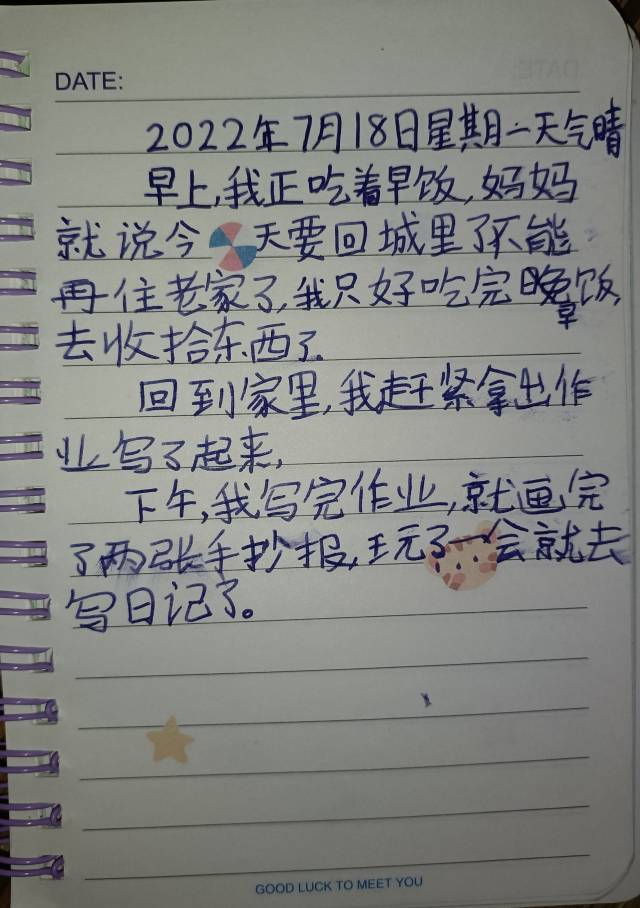 DATE:
2022年7月18日星期一天气晴
早上,我正吃着早饭,妈妈
就说今天要回城里了不能
再住老家了,我只好吃完早饭,
去收拾东西了.
回到家里,我赶紧拿出作
业写了起来,
下午,我写完作业,就画完
了两张手抄报,玩了一会就去
写日记了。
GOOD LUCK TO MEET YOU